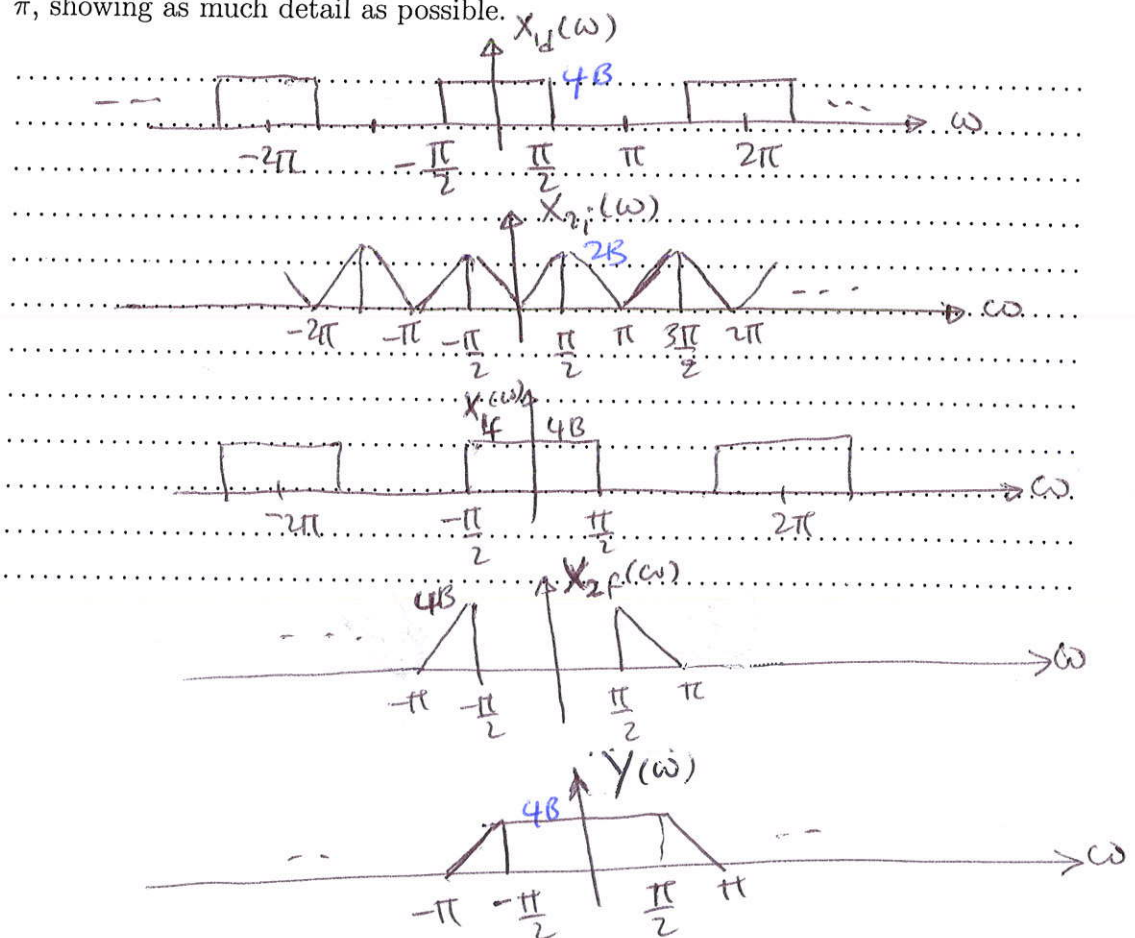 π, showing as much detail as possible.
X₁d(ω)
4B
ω
-2π -π/2 π/2 π 2π
X₂ᵢ(ω)
2B
ω
-2π -π -π/2 π/2 π 3π/2 2π
X₁f(ω)
4B
ω
-2π -π/2 π/2 2π
X₂f(ω)
4B
ω
-π -π/2 π/2 π
Y(ω)
4B
ω
-π -π/2 π/2 π